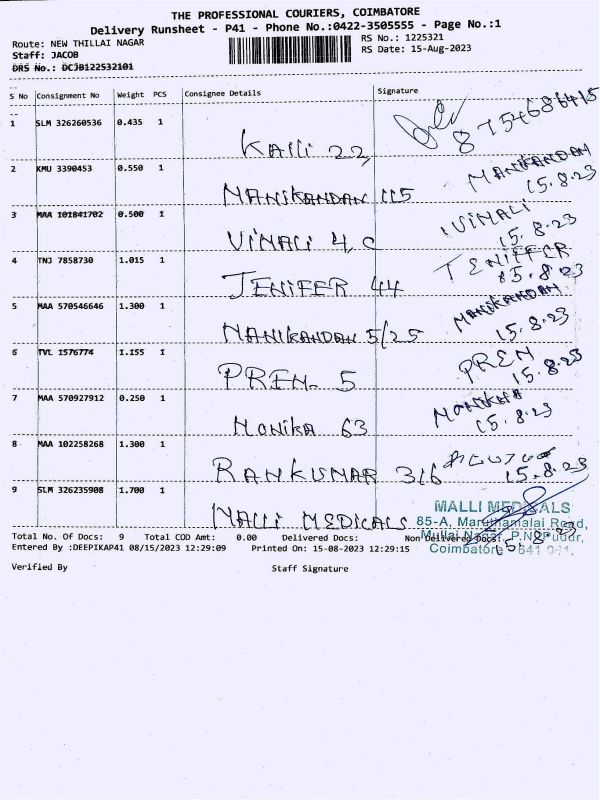 THE PROFESSIONAL COURIERS, COIMBATORE
Delivery Runsheet - P41 - Phone No.:0422-3505555 - Page No.:1
Route: NEW THILLAI NAGAR
RS No.: 1225321
Staff: JACOB
RS Date: 15-Aug-2023
DRS No.: DCJB122532101
S No Consignment No Weight PCS Consignee Details Signature
1 SLM 326260536 0.435 1 KAlli 22, 8754686415
2 KMU 3390453 0.550 1 MANIKANDAN 115 MANIKANDAN
15.8.23
3 MAA 101841702 0.500 1 VIMALI 4, C VIMALI
15.8.23
4 TNJ 7858730 1.015 1 JENIFER 44 JENIFFER
15.8.23
5 MAA 570546646 1.300 1 MANIKANDAN 5/25 MANIKANDAN
15.8.23
6 TVL 1576774 1.155 1 PREM. 5 PREM
15.8.23
7 MAA 570927912 0.250 1 MONIKA 63 MONIKHA
15.8.23
8 MAA 102258268 1.300 1 RAMKUMAR 316
15.8.23
9 SLM 326235908 1.700 1 MALLI MEDICALS MALLI MEDICALS
85-A, Maruthamalai Road,
Mullai Nagar, P.N. Pudur,
Coimbatore - 641 041.
15.8.23
Total No. Of Docs: 9 Total COD Amt: 0.00 Delivered Docs: Non Delivered Docs:
Entered By :DEEPIKAP41 08/15/2023 12:29:09 Printed On: 15-08-2023 12:29:15
Verified By Staff Signature